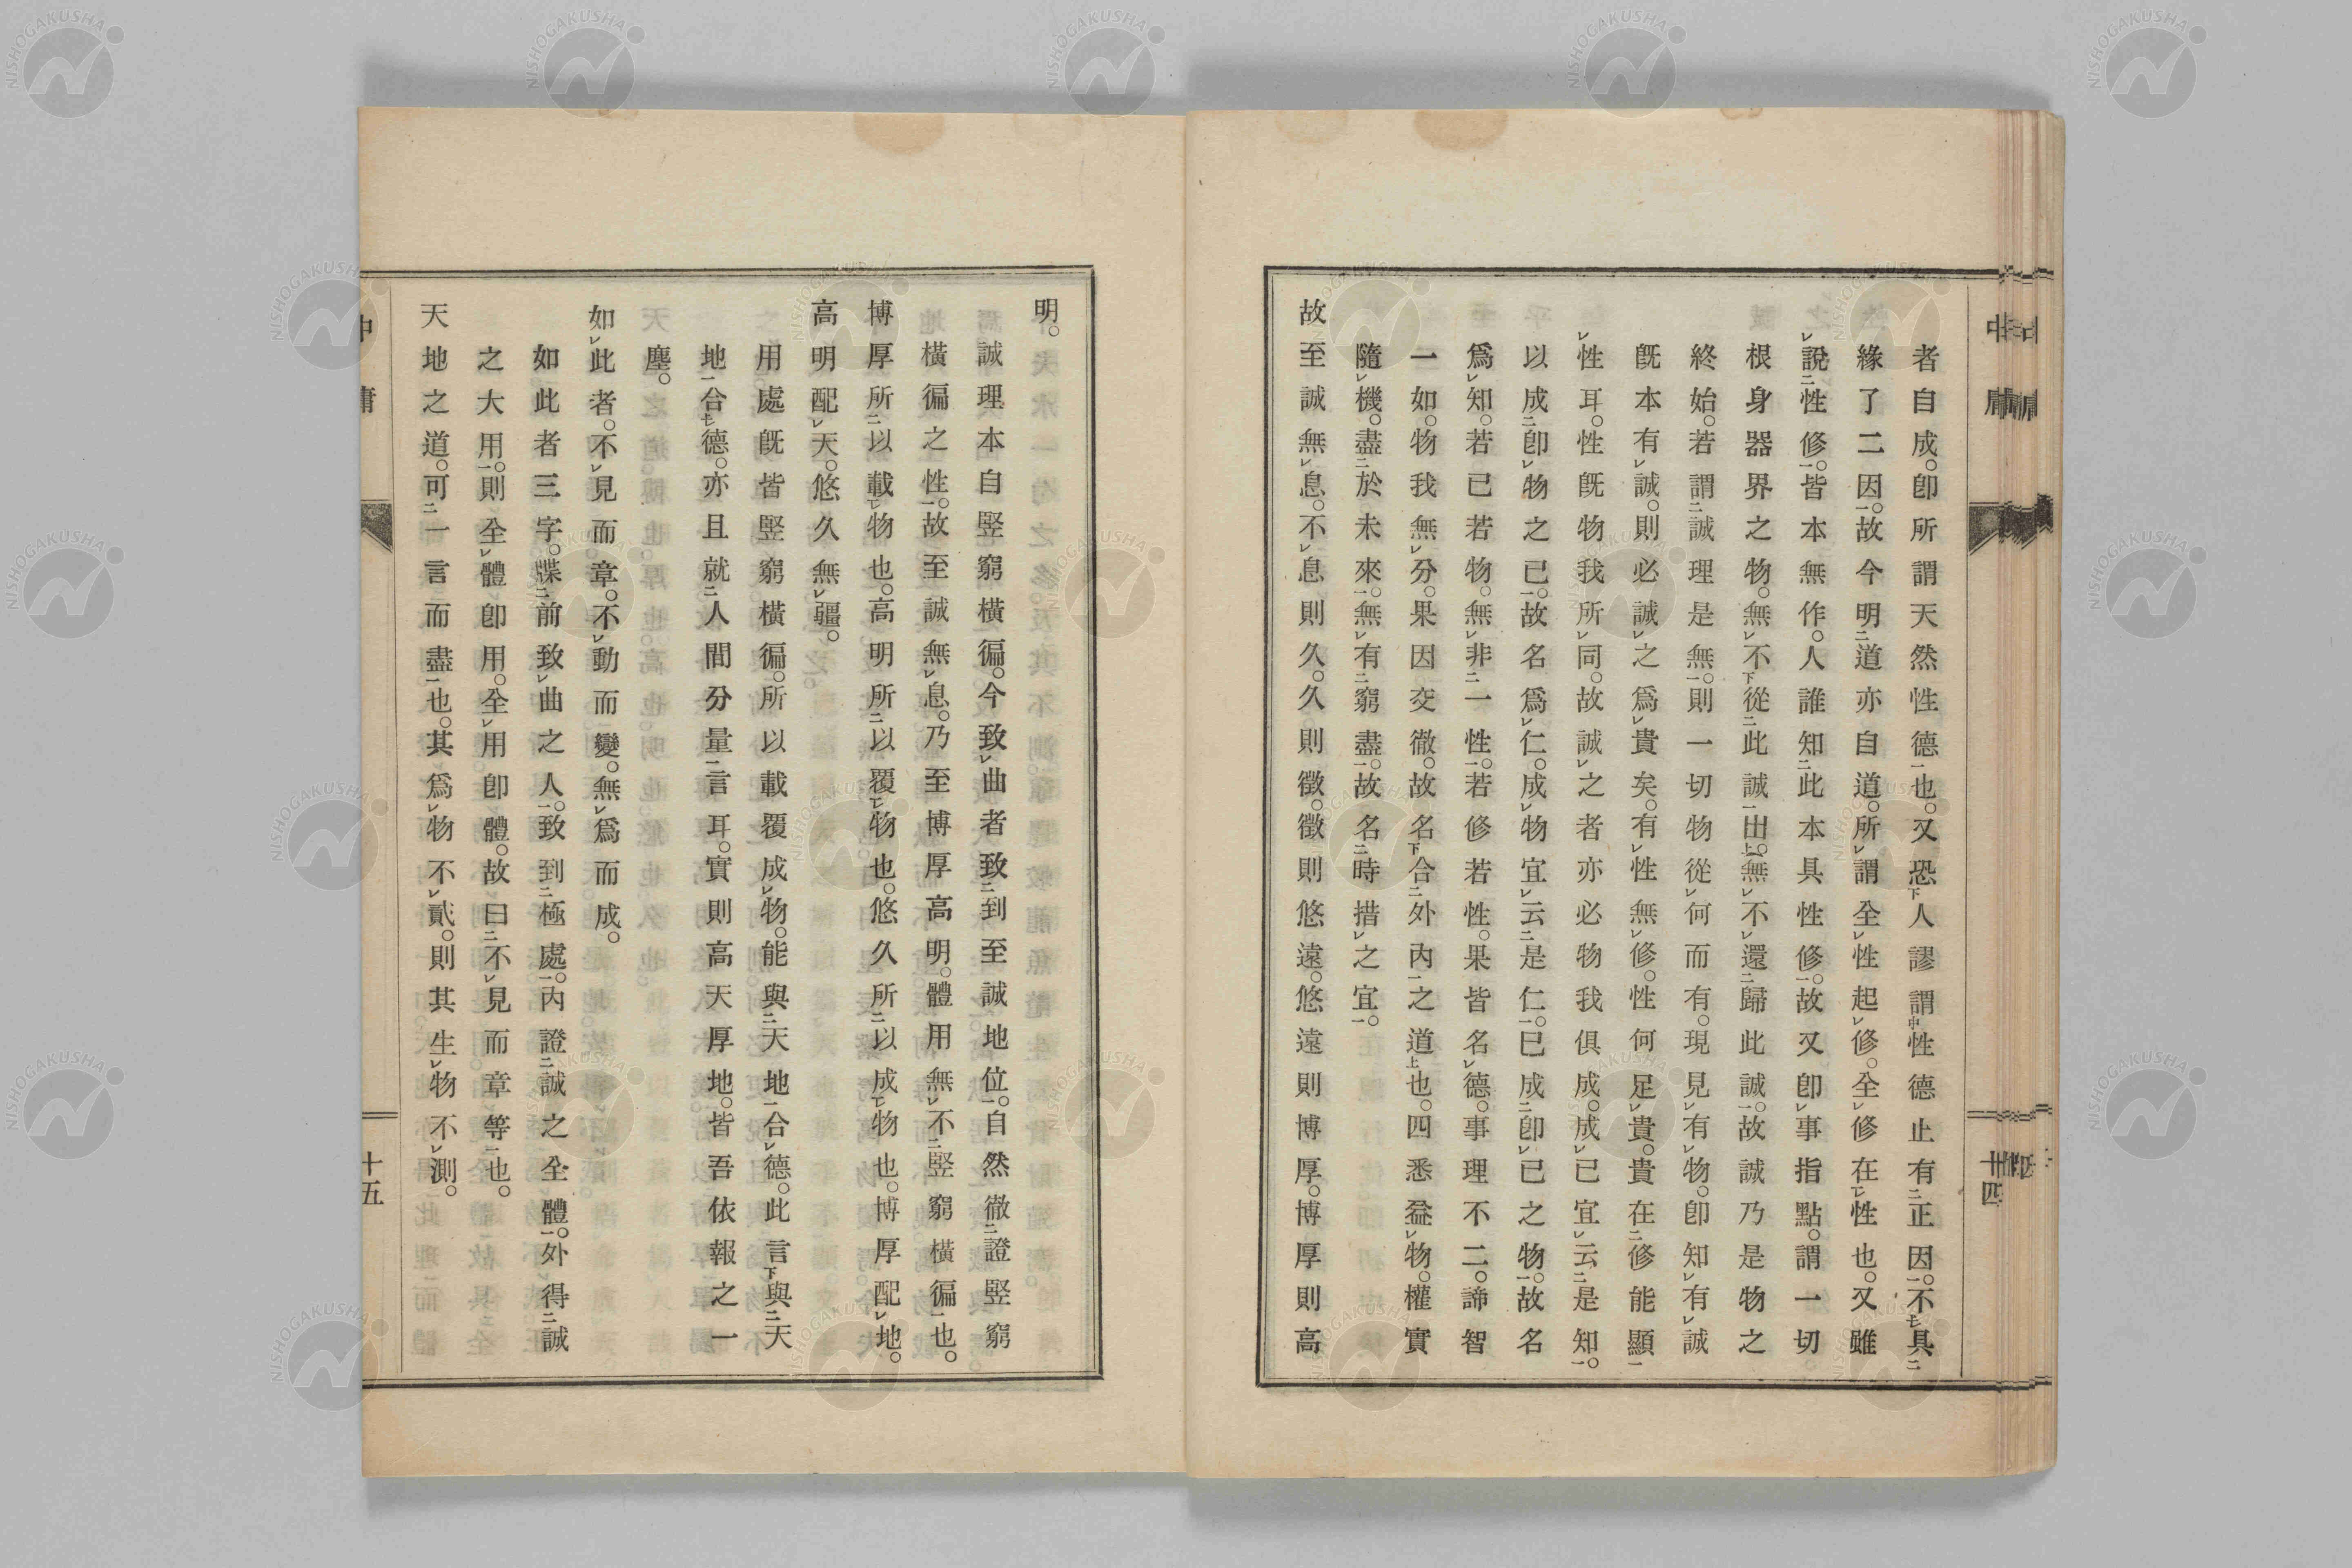 者自成。卽所謂天然性德也。又恐人謬謂性德止有正因。不具
緣了二因。故今明道亦自道。所謂全性起修。全修在性也。又雖
說性修。皆本無作。人誰知此本具性修。故又卽事指點。謂一切
根身器界之物。無不從此誠出。無不還歸此誠。故誠乃是物之
終始。若謂誠理是無。則一切物從何而有。現見有物。卽知有誠
旣本有誠。則必誠之爲貴矣。有性無修。性何足貴。貴在修能顯
性耳。性旣物我所同。故誠之者亦必物我俱成。成已宜云是知。
以成卽物之已。故名爲仁。成物宜云是仁。已成卽已之物。故名
爲知。若已若物。無非一性。若修若性。果皆名德。事理不二。諦智
一如。物我無分。果因交徹。故名合外內之道也。四悉益物。權實
隨機。盡於未來。無有窮盡。故名時措之宜。
故至誠無息。不息則久。久則徵。徵則悠遠。悠遠則博厚。博厚則高
中庸
十四
明。
誠理本自竪窮橫徧。今致曲者致到至誠地位。自然徹證竪窮
橫徧之性。故至誠無息。乃至博厚高明。體用無不竪窮橫徧也。
博厚所以載物也。高明所以覆物也。悠久所以成物也。博厚配地。
高明配天。悠久無疆。
用處旣皆竪窮橫徧。所以載覆成物。能與天地合德。此言與天
地合德。亦且就人間分量言耳。實則高天厚地。皆吾依報之一
塵。
如此者。不見而章。不動而變。無爲而成。
如此者三字。牒前致曲之人。致到極處。內證誠之全體。外得誠
之大用。則全體卽用。全用卽體。故曰不見而章等也。
天地之道。可一言而盡也。其爲物不貳。則其生物不測。
中庸
十五